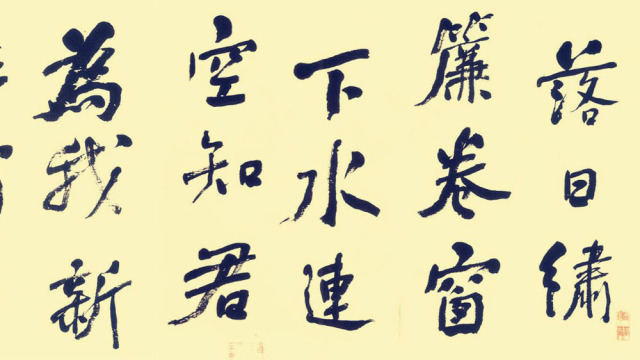 落日繡
簾卷窗
下水連
空知君
為我新